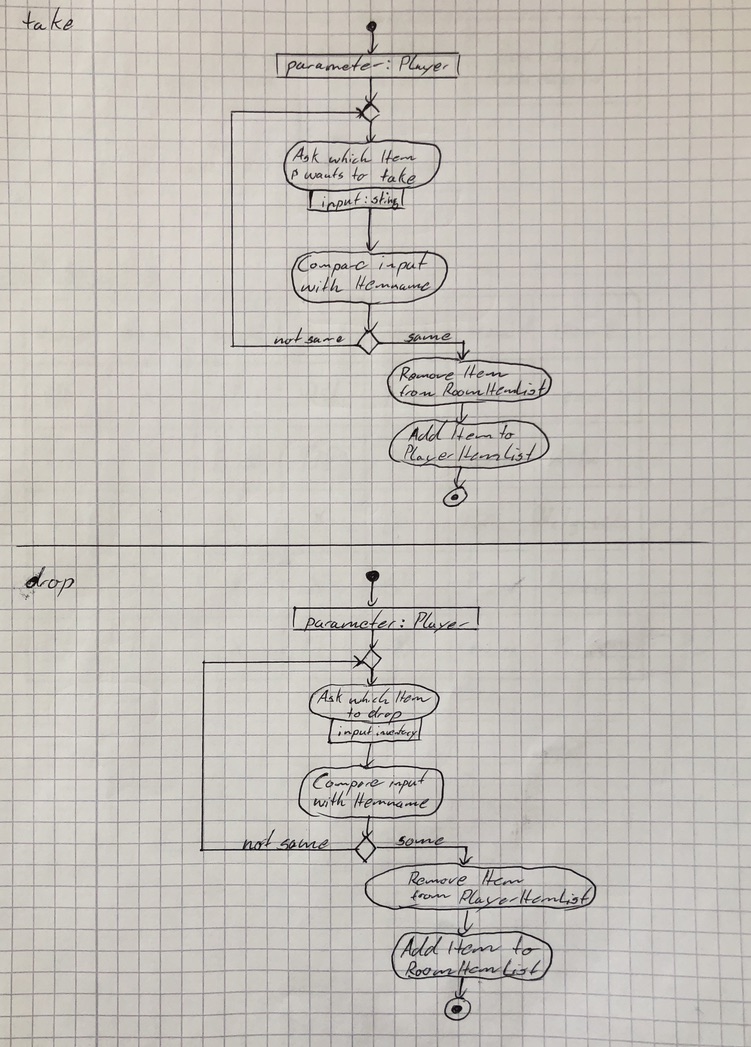 take
parameter: Player
Ask which Item
p wants to take
input: sting
Compare input
with Itemname
not same
same
Remove Item
from RoomItemList
Add Item to
PlayerItemList
drop
parameter: Player
Ask which Item
to drop
input: inventory
Compare input
with Itemname
not same
same
Remove Item
from PlayerItemList
Add Item to
RoomItemList